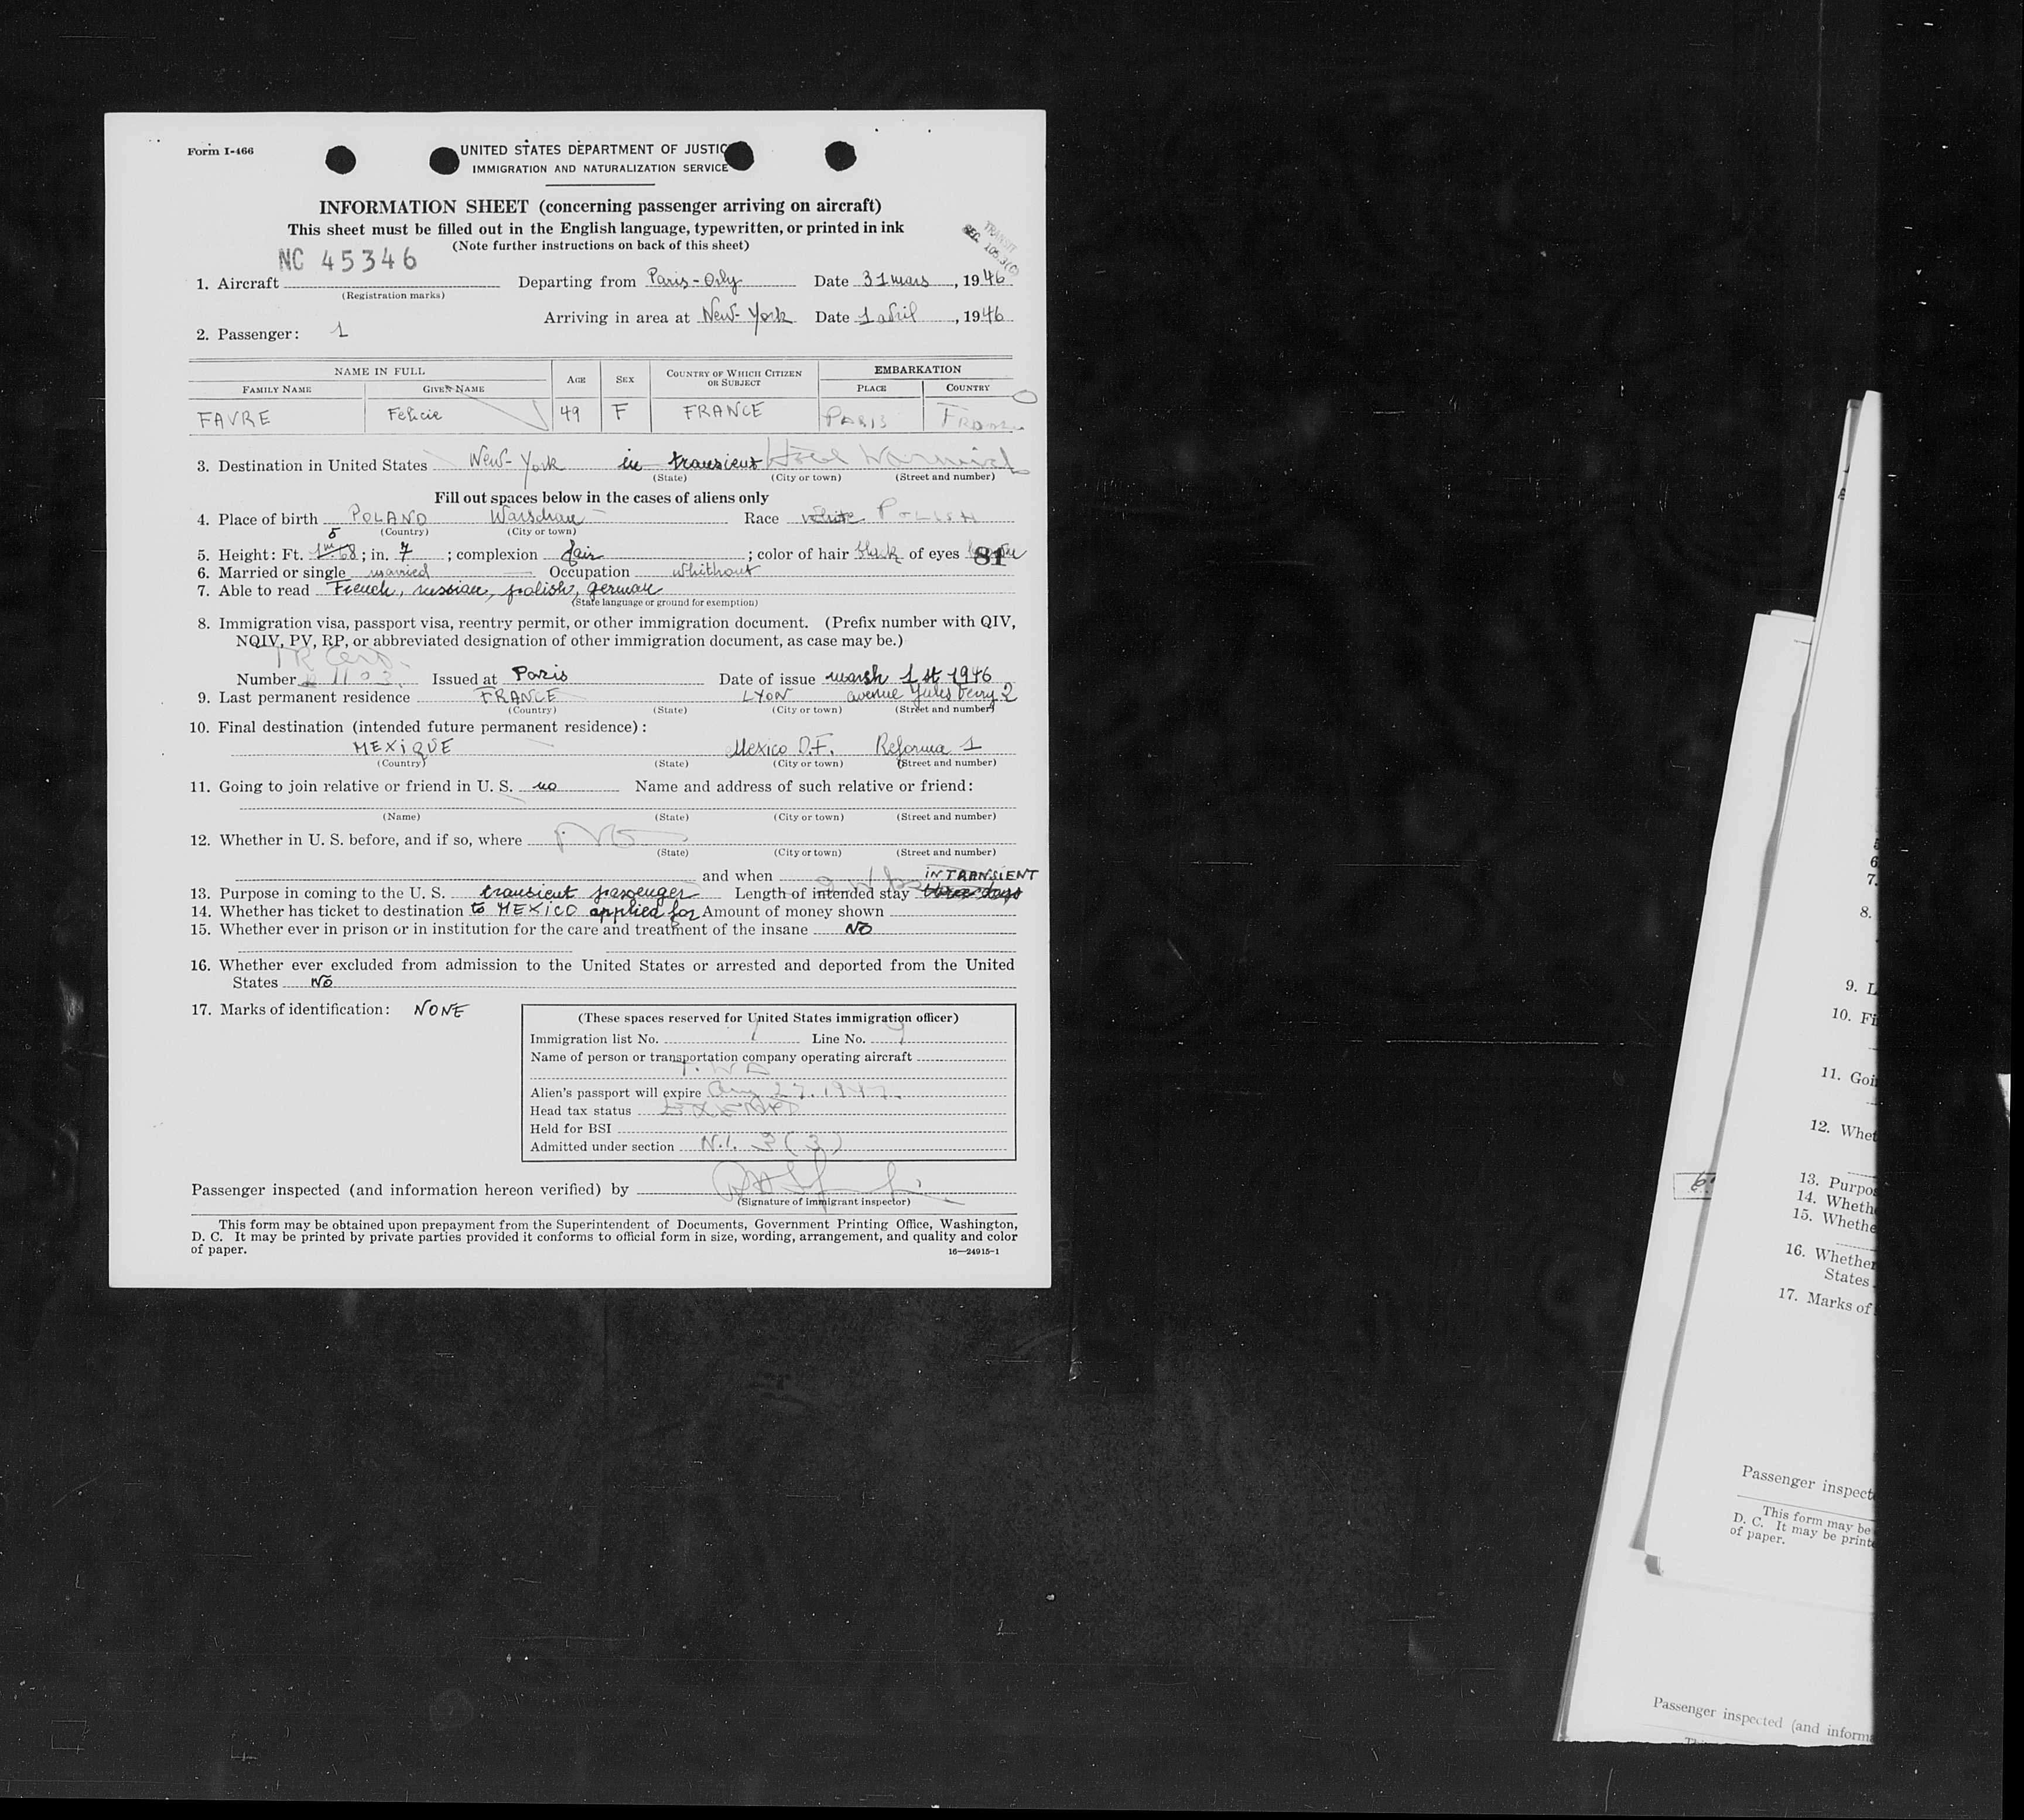 Form I-466
UNITED STATES DEPARTMENT OF JUSTIC
IMMIGRATION AND NATURALIZATION SERVICE
INFORMATION SHEET (concerning passenger arriving on aircraft)
This sheet must be filled out in the English language, typewritten, or printed in ink
(Note further instructions on back of this sheet)
TRANSIT
SEC. 105.3(C)
NC 45346
1. Aircraft Departing from Paris-Orly Date 31 mars, 1946
(Registration marks)
Arriving in area at New-York Date 1 avril, 1946
2. Passenger: 1
NAME IN FULL AGE SEX COUNTRY OF WHICH CITIZEN OR SUBJECT EMBARKATION
FAMILY NAME GIVEN NAME PLACE COUNTRY
FAVRE Felicie 49 F FRANCE PARIS France
3. Destination in United States New-York in transient Hotel Warwick
(State) (City or town) (Street and number)
Fill out spaces below in the cases of aliens only
4. Place of birth POLAND Warschau Race white POLISH
(Country) (City or town)
5. Height: Ft. 1m68 5; in. 7; complexion fair; color of hair black of eyes
81
6. Married or single married Occupation whithout
7. Able to read French, russian, polish, german
(State language or ground for exemption)
8. Immigration visa, passport visa, reentry permit, or other immigration document. (Prefix number with QIV,
NQIV, PV, RP, or abbreviated designation of other immigration document, as case may be.)
TR Cert.
Number 1103 Issued at Paris Date of issue marsh 1st 1946
9. Last permanent residence FRANCE LYON avenue Jules Ferry 2
(Country) (State) (City or town) (Street and number)
10. Final destination (intended future permanent residence):
MEXIQUE Mexico D.F. Reforma 1
(Country) (State) (City or town) (Street and number)
11. Going to join relative or friend in U. S. no Name and address of such relative or friend:
(Name) (State) (City or town) (Street and number)
12. Whether in U. S. before, and if so, where No
(State) (City or town) (Street and number)
and when IN TRANSIENT
13. Purpose in coming to the U. S. transient passenger Length of intended stay three days
14. Whether has ticket to destination to MEXICO applied for Amount of money shown
15. Whether ever in prison or in institution for the care and treatment of the insane NO
16. Whether ever excluded from admission to the United States or arrested and deported from the United
States NO
17. Marks of identification: NONE
(These spaces reserved for United States immigration officer)
Immigration list No. 1 Line No. 9
Name of person or transportation company operating aircraft
T.WA
Alien's passport will expire Aug 27. 1947.
Head tax status EXEMPT
Held for BSI
Admitted under section N.I. 3(3)
Passenger inspected (and information hereon verified) by
(Signature of immigrant inspector)
This form may be obtained upon prepayment from the Superintendent of Documents, Government Printing Office, Washington,
D. C. It may be printed by private parties provided it conforms to official form in size, wording, arrangement, and quality and color
of paper.
16—24915-1
6.
7.
8.
9. L
10. Fi
11. Goi
12. Whet
13. Purpos
14. Wheth
15. Whethe
16. Whether
States
17. Marks of
Passenger inspect
This form may be
D. C. It may be print
of paper.
Passenger inspected (and inform